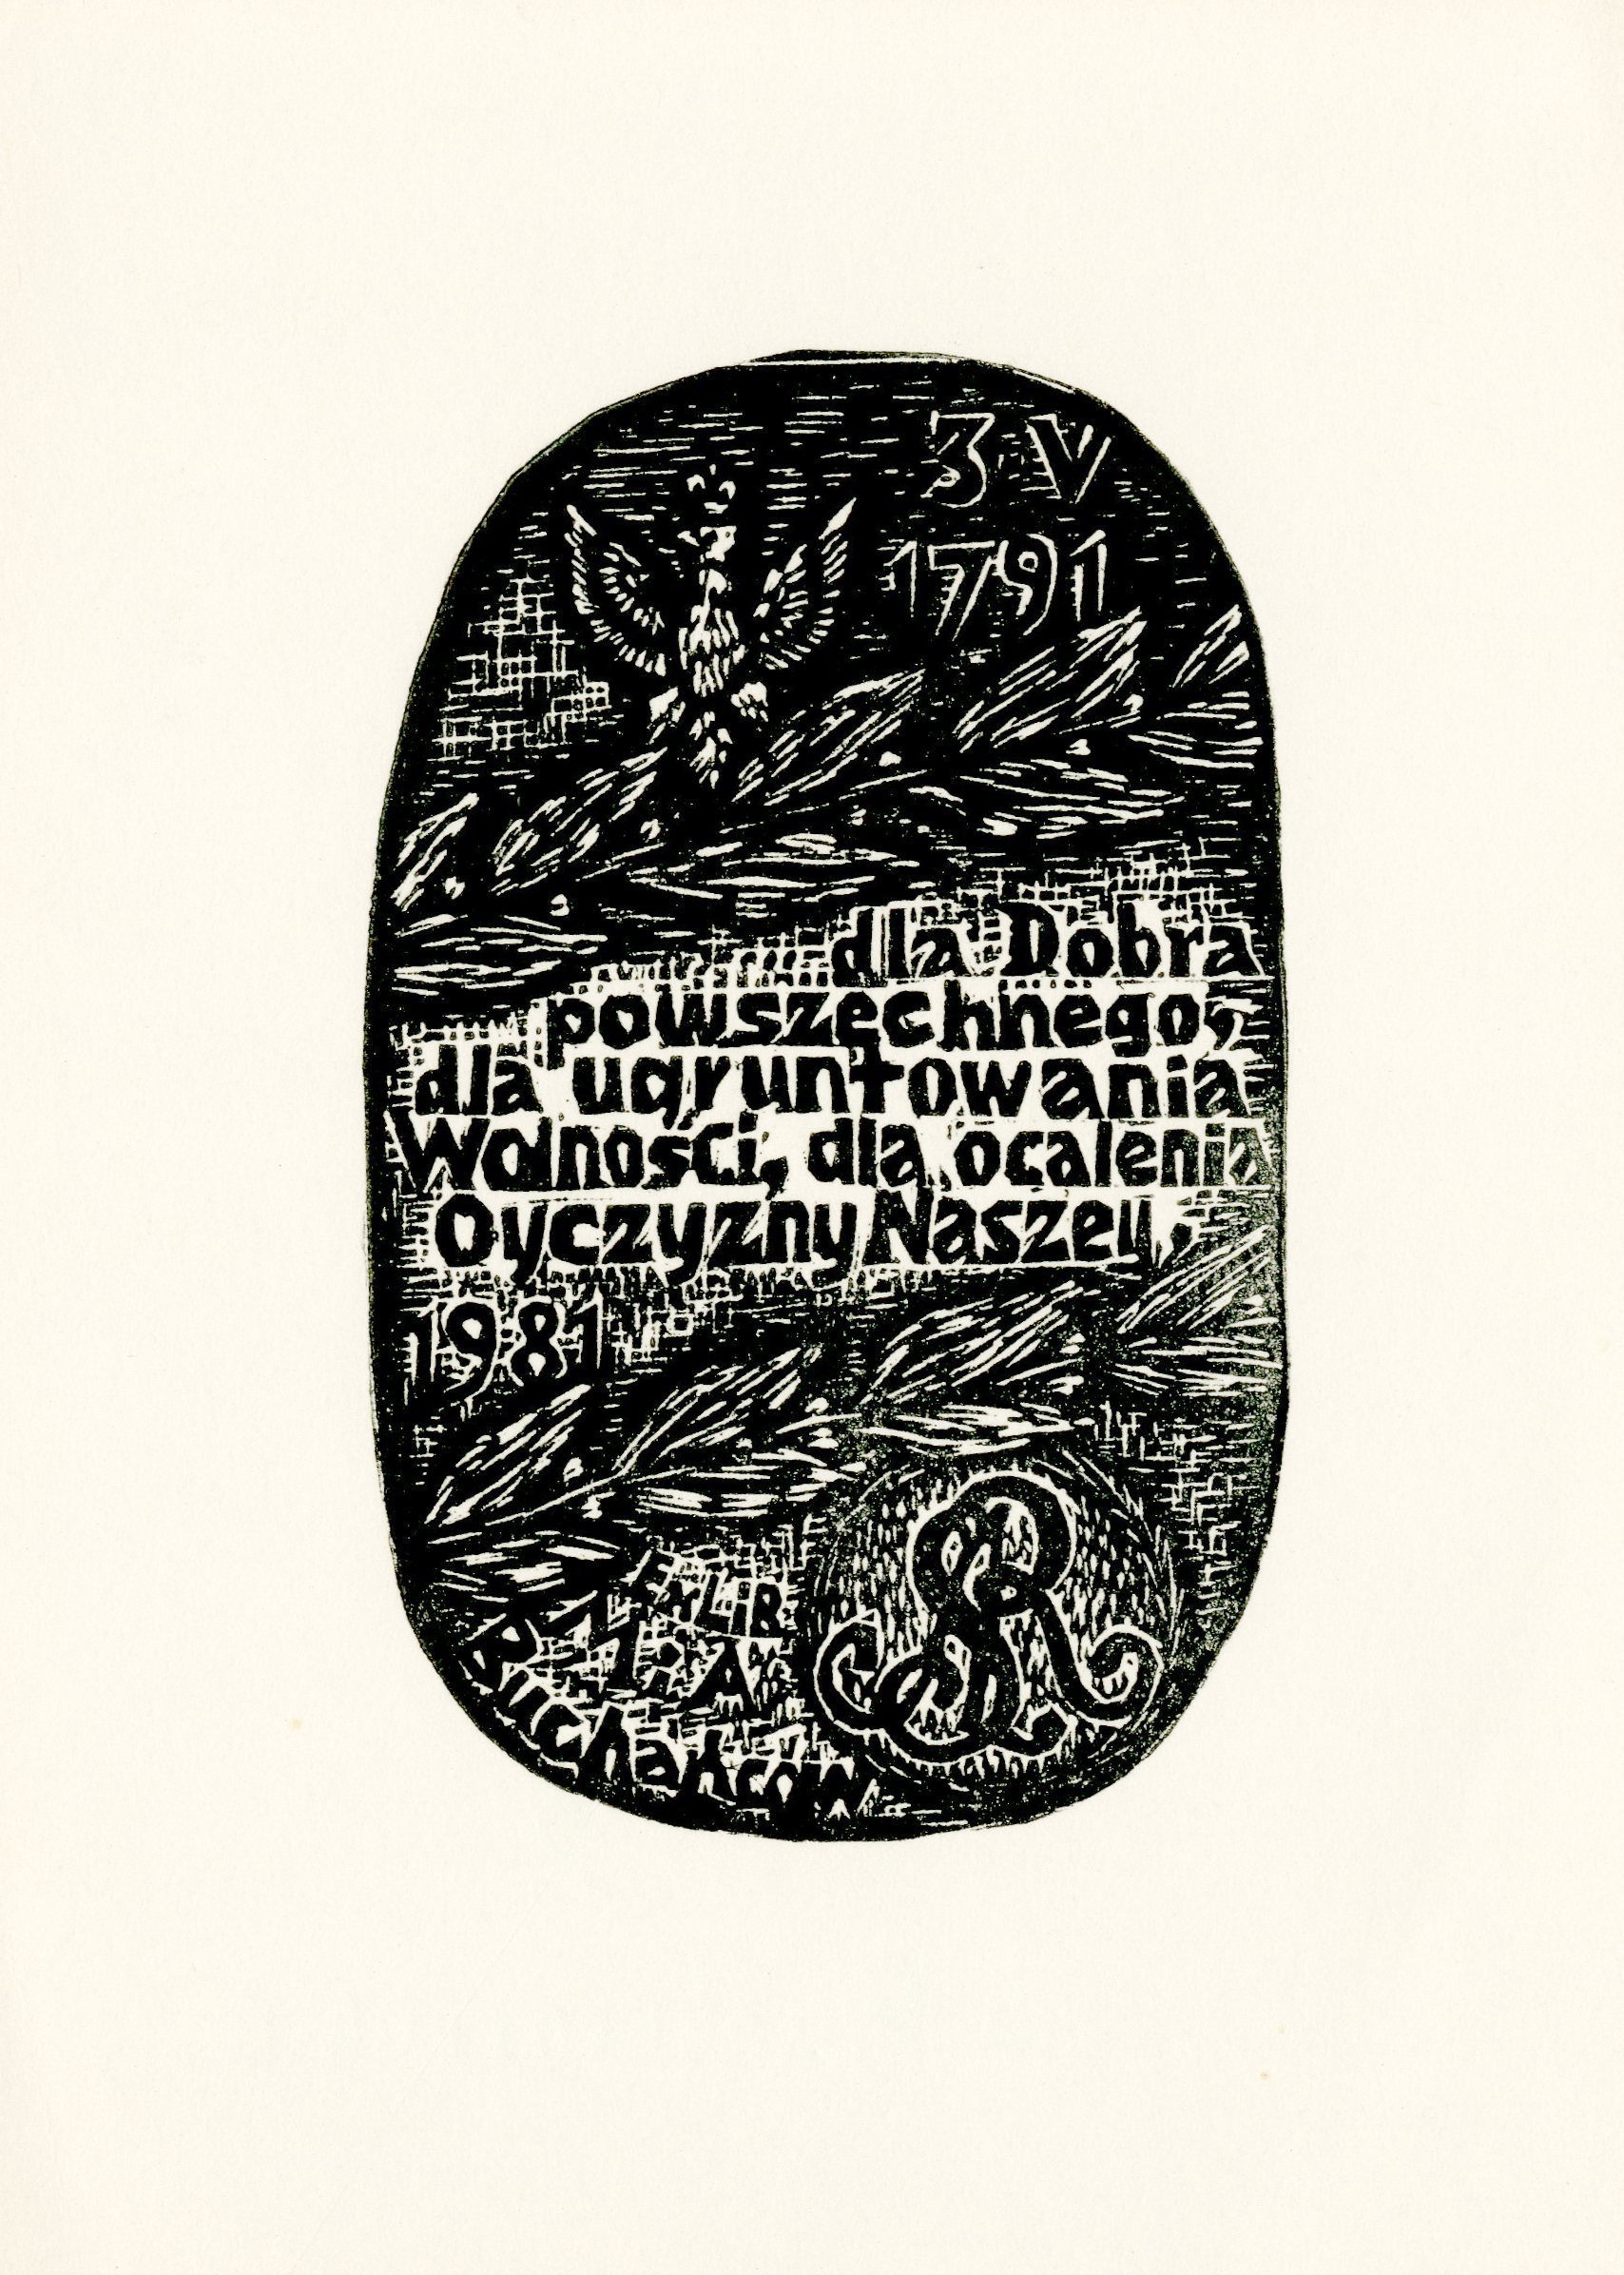 3 V
1791
dla Dobra
powszechnego,
dla ugruntowania
Wolności, dla ocalenia
Oyczyzny Naszey,
1981
EXLIBR
M A